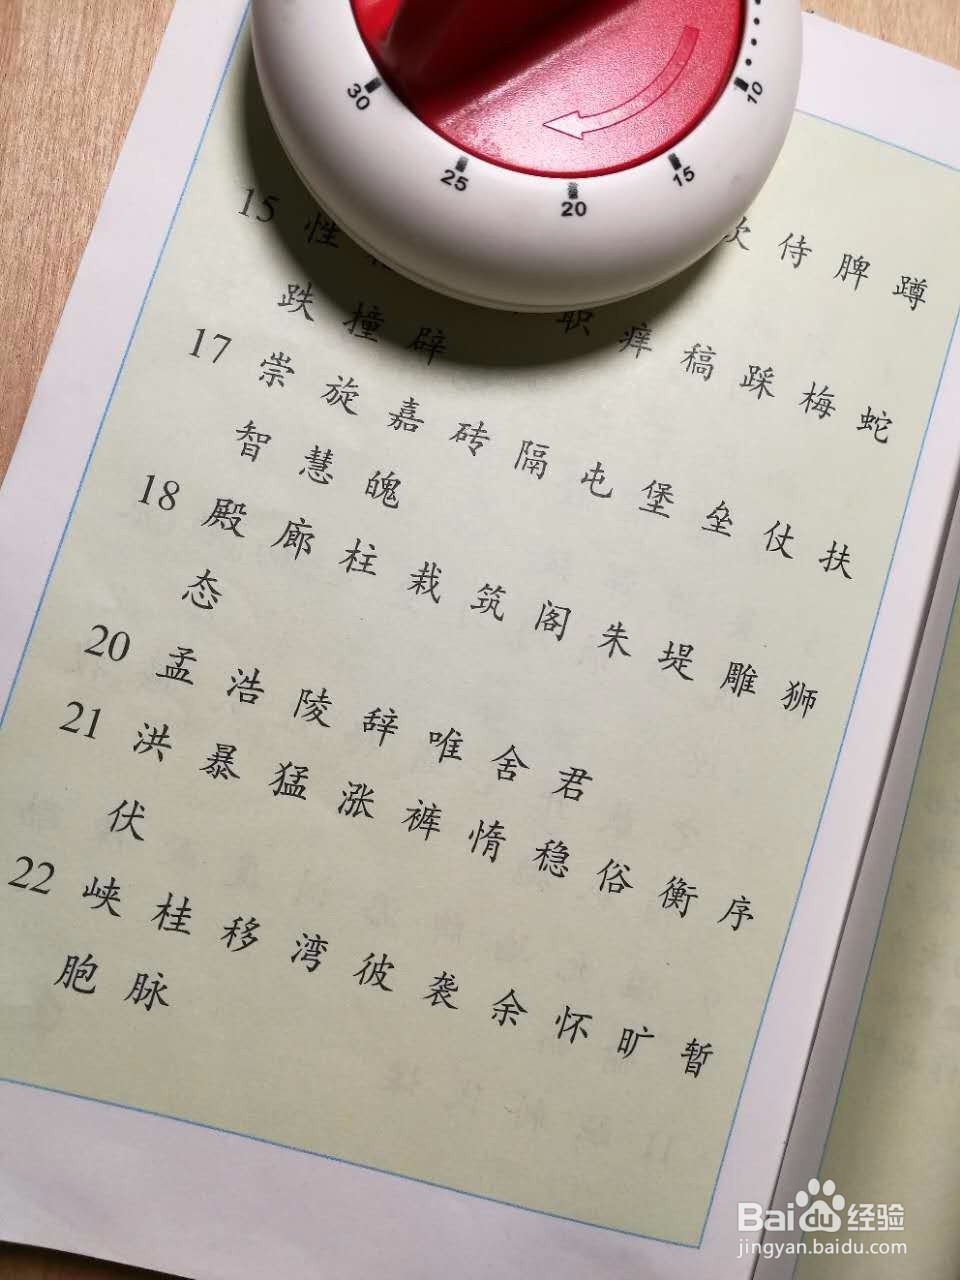 30
25
20
15
10
侍 脾 蹲
15 性 职 痒 稿 踩 梅 蛇
跌 撞 辟
17 崇 旋 嘉 砖 隔 屯 堡 垒 仗 扶
智 慧 魄
18 殿 廊 柱 栽 筑 阁 朱 堤 雕 狮
态
20 孟 浩 陵 辞 唯 舍 君
21 洪 暴 猛 涨 裤 惰 稳 俗 衡 序
伏
22 峡 桂 移 湾 彼 袭 余 怀 旷 暂
胞 脉
Baidu经验
jingyan.baidu.com